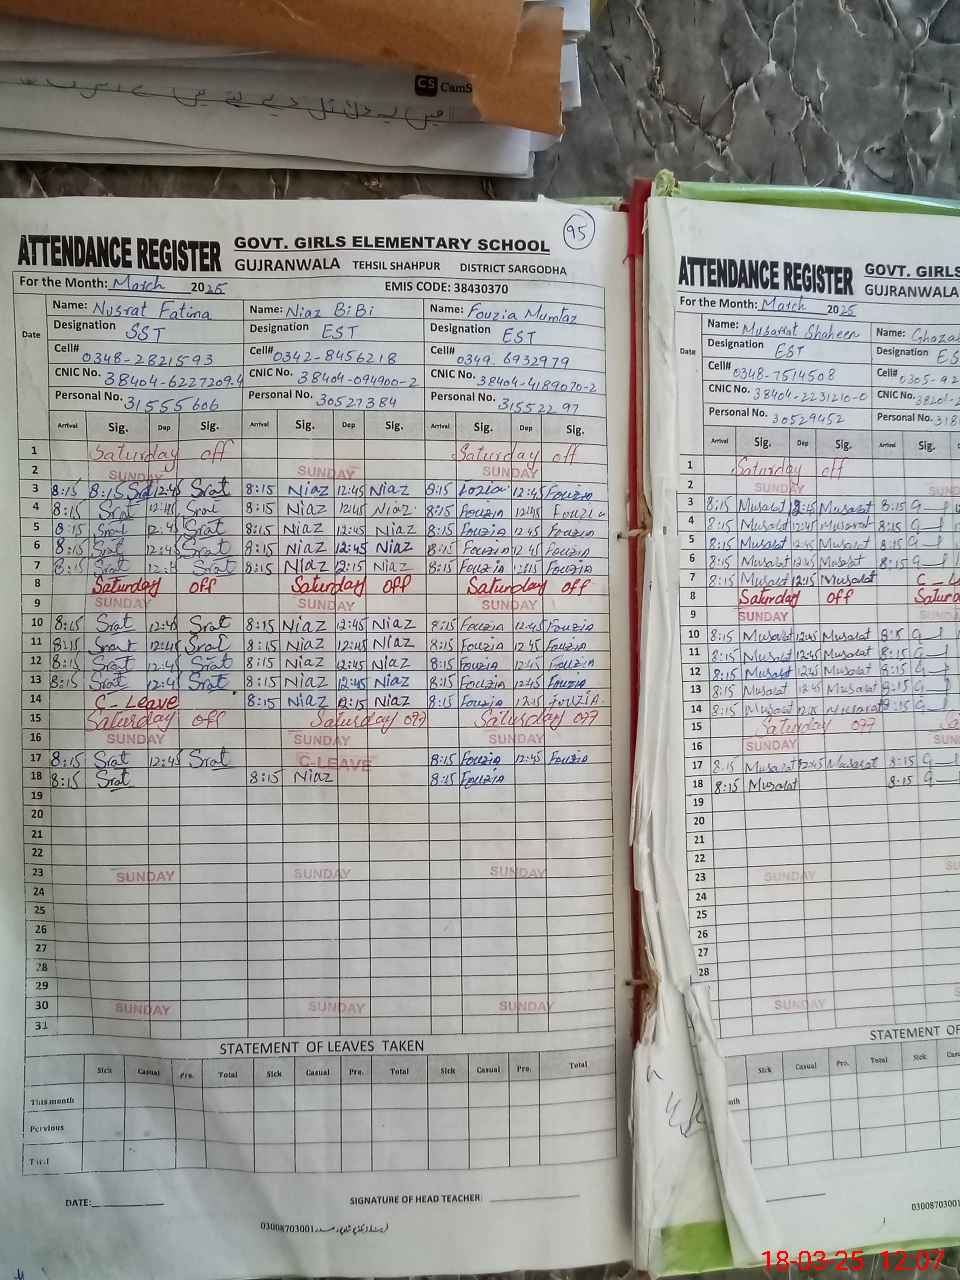 CS CamS
95
ATTENDANCE REGISTER GOVT. GIRLS ELEMENTARY SCHOOL
GUJRANWALA TEHSIL SHAHPUR DISTRICT SARGODHA
For the Month: March 2025 EMIS CODE: 38430370
Date Name: Nusrat Fatima Name: Niaz BiBi Name: Fouzia Mumtaz
Designation SST Designation EST Designation EST
Cell# 0348-2821593 Cell# 0342-8456218 Cell# 0349.6932979
CNIC No. 38404-6227209-4 CNIC No. 38404-094900-2 CNIC No. 38404-4189070-2
Personal No. 31555606 Personal No. 30527384 Personal No. 31552297
Arrival Sig. Dep Sig. Arrival Sig. Dep Sig. Arrival Sig. Dep Sig.
1 Saturday off Saturday off
2 SUNDAY SUNDAY SUNDAY
3 8:15 8:15 Srat 12:45 Srat 8:15 Niaz 12:45 Niaz 8:15 Fozia 12:45 Fouzia
4 8:15 Srat 12:45 Srat 8:15 Niaz 12:45 Niaz 8:15 Fouzia 12:45 Fouzia
5 8:15 Srat 12:45 Srat 8:15 Niaz 12:45 Niaz 8:15 Fouzia 12:45 Fouzia
6 8:15 Srat 12:45 Srat 8:15 Niaz 12:45 Niaz 8:15 Fouzia 12:45 Fouzia
7 8:15 Srat Srat 8:15 Niaz 12:15 Niaz 8:15 Fouzia 12:15 Fouzia
8 Saturday off Saturday off Saturday off
9 SUNDAY SUNDAY SUNDAY
10 8:15 Srat 12:45 Srat 8:15 Niaz 12:45 Niaz 8:15 Fouzia 12:45 Fouzia
11 8:15 Srat 12:45 Srat 8:15 Niaz 12:45 Niaz 8:15 Fouzia 12:45 Fouzia
12 8:15 Srat 12:45 Srat 8:15 Niaz 12:45 Niaz 8:15 Fouzia 12:45 Fouzia
13 8:15 Srat 12:45 Srat 8:15 Niaz 12:45 Niaz 8:15 Fouzia 12:45 Fouzia
14 C-Leave 8:15 Niaz 12:15 Niaz 8:15 Fouzia 12:15 FOUZIA
15 Saturday off Saturday off Saturday off
16 SUNDAY SUNDAY SUNDAY
17 8:15 Srat 12:45 Srat C-LEAVE 8:15 Fouzia 12:45 Fouzia
18 8:15 Srat 8:15 Niaz 8:15 Fouzia
19
20
21
22
23 SUNDAY SUNDAY SUNDAY
24
25
26
27
28
29
30 SUNDAY SUNDAY SUNDAY
31
STATEMENT OF LEAVES TAKEN
Sick Casual Pro. Total Sick Casual Pro. Total Sick Casual Pro. Total
This month
Pervious
Total
DATE: SIGNATURE OF HEAD TEACHER
03008703001
ATTENDANCE REGISTER GOVT. GIRLS
GUJRANWALA
For the Month: March 2025
Date Name: Musarrat Shaheen Name: Ghazal
Designation EST Designation ES
Cell# 0348-7514508 Cell# 0305-92
CNIC No. 38404-2231210-0 CNIC No. 38201-2
Personal No. 30529452 Personal No. 318
Arrival Sig. Dep Sig. Arrival Sig.
1 Saturday off
2 SUNDAY SUND
3 8:15 Musarat 12:45 Musarat 8:15 G
4 8:15 Musarat 12:45 Musarat 8:15 G
5 8:15 Musarat 12:45 Musarat 8:15 G
6 8:15 Musarat 12:45 Musarat 8:15 G
7 8:15 Musarat 12:15 Musarat C-L
8 Saturday off Saturd
9 SUNDAY SUND
10 8:15 Musarat 12:45 Musarat 8:15 G
11 8:15 Musarat 12:45 Musarat 8:15 G
12 8:15 Musarat 12:45 Musarat 8:15 G
13 8:15 Musarat 12:45 Musarat 8:15 G
14 8:15 Musarat 12:15 Musarat 8:15 G
15 Saturday off Sa
16 SUNDAY SUND
17 8:15 Musarat 12:45 Musarat 8:15 G
18 8:15 Musarat 8:15 G
19
20
21
22
23 SUNDAY SU
24
25
26
27
28
SUNDAY S
STATEMENT OF
Sick Casual Pro. Total Sick Casu
nth
0300870300
18-03-25 12:07